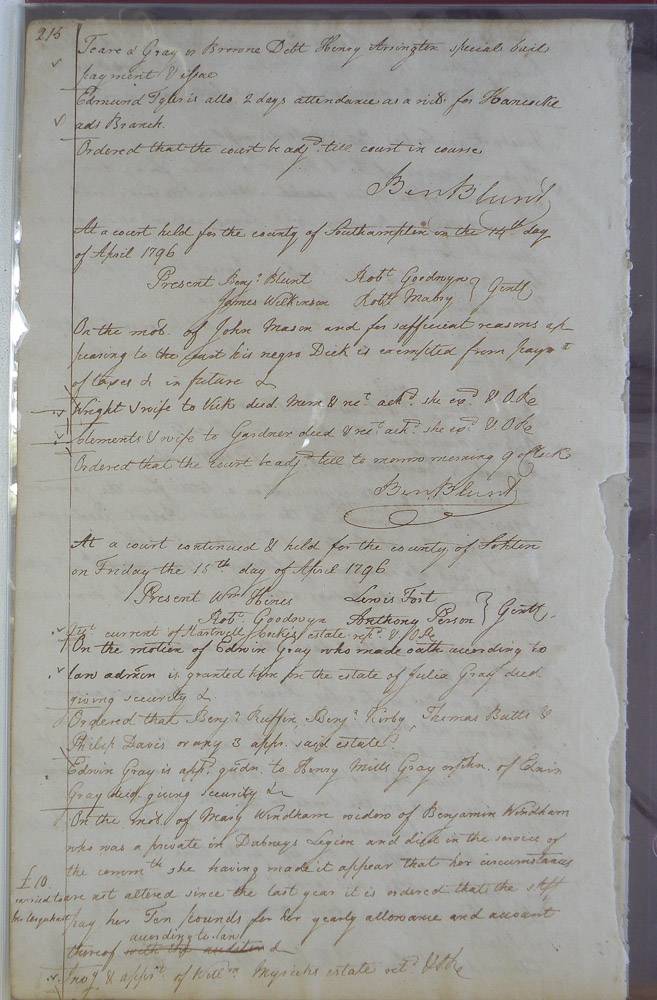 215
Teare & Gray vs Browne Debt Henry Arrington special bail
payment & issue
Edmund Tyler is allo. 2 days attendance as a witt. for Hancocke
ads Branch.
Ordered that the court be adjd. till court in course
Ben Blunt
At a court held for the county of Southampton on the 14th day
of April 1796
Present Benja. Blunt Robt. Goodwyn } Gentl
James Wilkinson Robt. Mabry
On the mot. of John Mason and for sufficient reasons ap
pearing to the court his negro Dick is exempted from paymt
of taxes & in future &
Wright & wife to Vick deed Mem & rect. ackd. she exd. & O Re
Clements & wife to Gardner deed & rect. ackd. she exd. & O Re
Ordered that the court be adjd. till to morrow morning 9 oClock
Ben Blunt
At a court continued & held for the county of Sohton
on Friday the 15th day of April 1796
Present Wm Hines Lewis Fort
Robt. Goodwyn Anthony Person } Gentl.
Acct. current of Hartwell estate retd. & O Re
On the motion of Edwin Gray who made oath according to
law admon is granted him on the estate of Julia Gray deed
giving security &
Ordered that Benja. Ruffin, Benja. Kirby, Thomas Butts &
Philip Davis or any 3 appr. said estate
Edwin Gray is appd. gudn. to Henry Mills Gray orphn. of Edwin
Gray deed giving security &
On the mot. of Mary Windham widow of Benjamin Windham
who was a private in Dabneys Legion and died in the service of
the commth she having made it appear that her circumstances
£10
carried to are not altered since the last year it is ordered that the shff
pay her Ten pounds for her yearly allowance and account
according to law
thereof with the auditor &
Invy & apprt. of Willm Myricks estate ret. & O Re